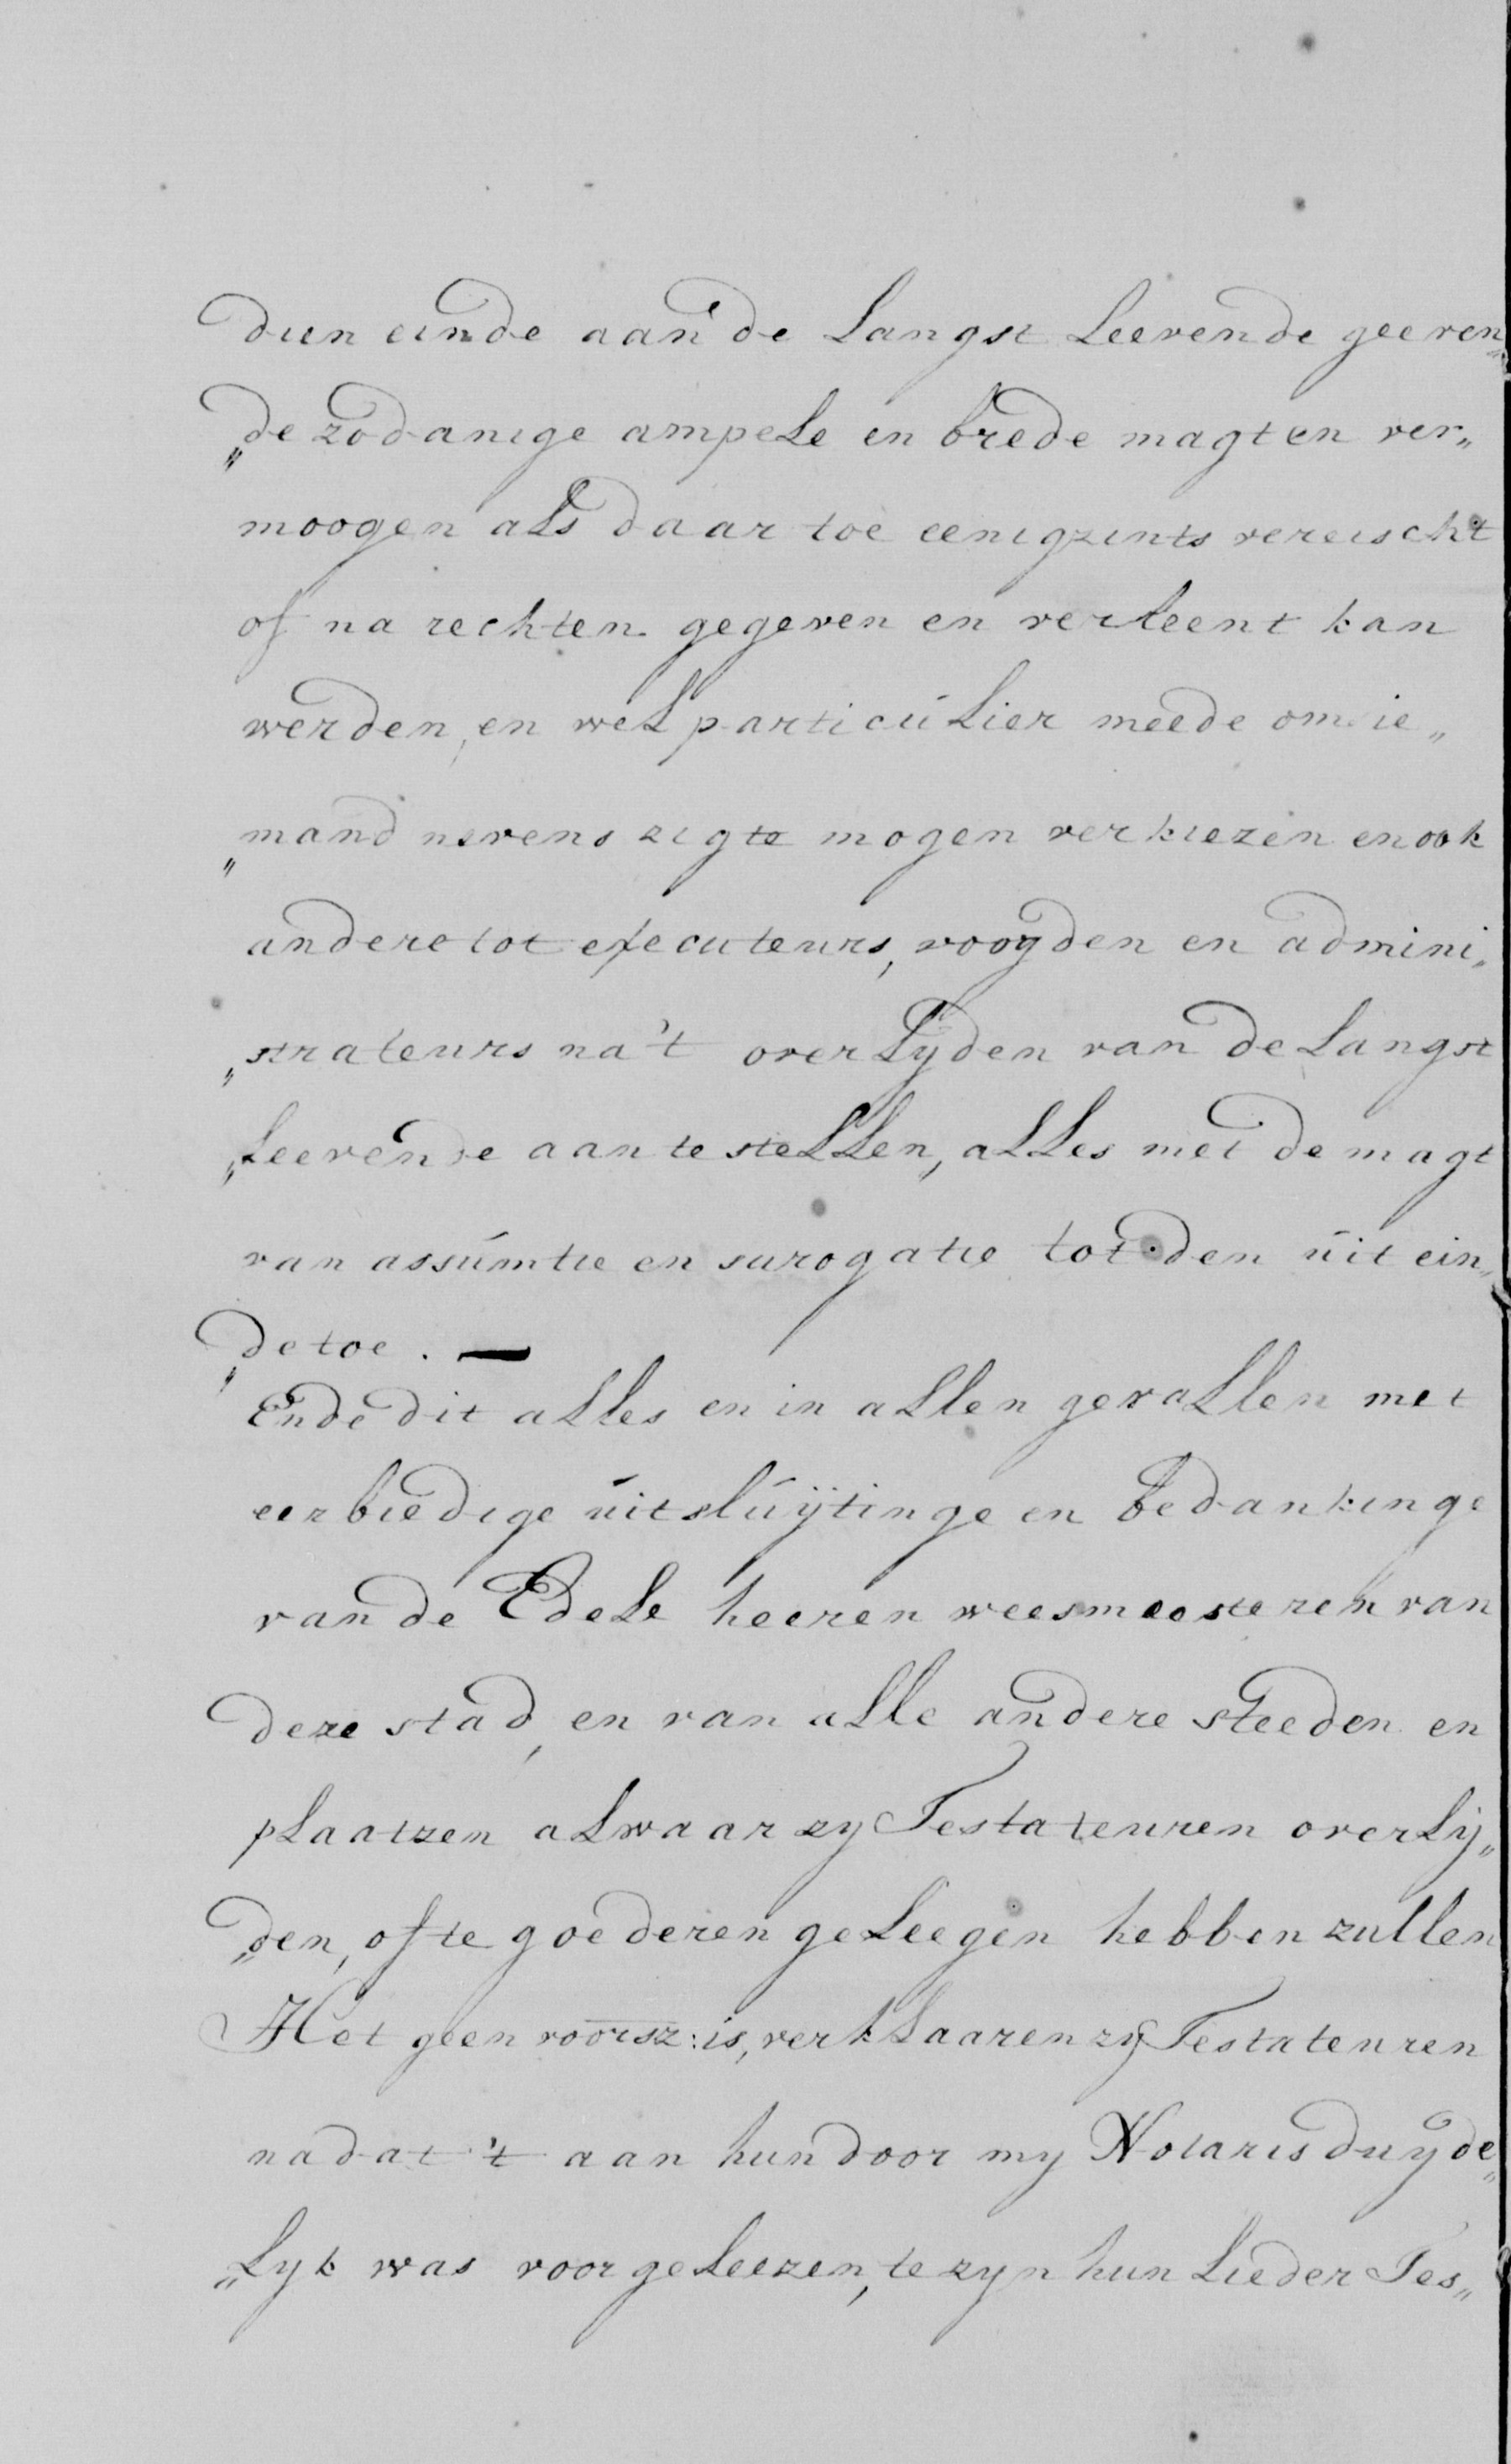 dien einde aan de Langst Leevende geeven„
„de zodanige ampele en brede magt en ver„
moogen als daar toe eenigzints vereischt
of na rechten gegeven en verleent kan
werden, en wel particúlier meede om ie„
„mand nevens zig te mogen verkiezen en ook
andere tot executeurs, voogden en admini„
„strateurs na 't overlyden van de Langst
„leevende aan te stellen, alles met de magt
van assúmtie en surogatie tot den úit ein„
„de toe. —
Ende dit alles en in allen gevallen met
eerbiedige úitslúijtinge en bedankinge
van de Edele heeren weesmeesteren van
deze stad, en van alle andere steeden en
plaatzen alwaar zy Testateuren overlij„
„den, ofte goederen geleegen hebben zullen
Het geen voorsz: is, verklaaren zij Testateuren
na dat 't aan hun door my Notaris duyde„
„lyk was voorgeleezen, te zyn hun Lieder Tes„